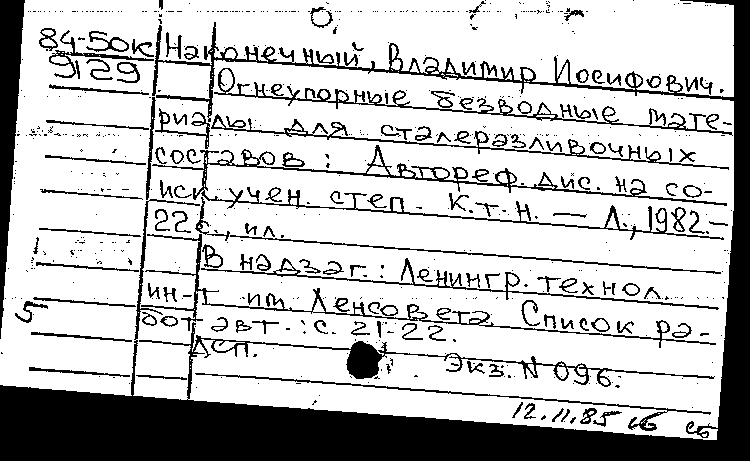 84-50к Наконечный, Владимир Иосифович.
9129 Огнеупорные безводные мате-
риалы для сталеразливочных
составов : Автореф. дис. на со-
иск. учен. степ. к.т.н. — Л., 1982.-
22с., ил.
В надзаг.: Ленингр. технол.
ин-т им. Ленсовета. Список ра-
5 бот авт.: с. 21-22.
ДСП. Экз. N 096.
12.11.85 сб сб